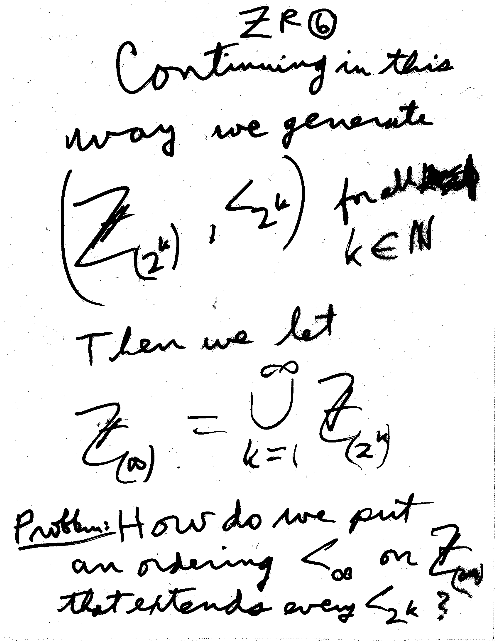 ZR⑥
Continuing in this
way we generate
(ℤ_(2^k), <_2^k) for all
k ∈ ℕ
Then we let
ℤ_(∞) = ∪_{k=1}^∞ ℤ_(2^k)
Problem: How do we put
an ordering <_∞ on ℤ_(∞)
that extends every <_2^k ?